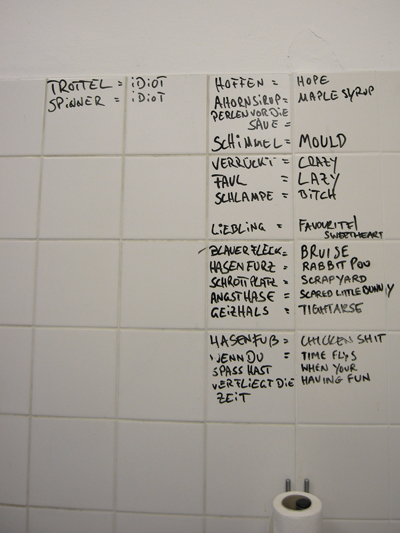 TROTTEL = iDiOT
SPiNNER = iDiOT
HOFFEN = HOPE
AHORNSiROP = MAPLE SYRUP
PERLEN VOR DiE
SÄUE =
SCHiMMEL = MOULD
VERRÜCKT = CRAZY
FAUL = LAZY
SCHLAMPE = BiTCH
LiEBLiNG = FAVOURiTE/
SWEETHEART
BLAUER FLECK = BRUiSE
HASENFURZ = RABBiT POO
SCHROTTPLATZ = SCRAPYARD
ANGSTHASE = SCARED LiTTLE BUNNY
GEiZHALS = TiGHTARSE
HASENFUß = CHiCKEN SHiT
WENN DU = TiME FLYS
SPASS HAST WHEN YOUR
VERFLiEGT DiE HAViNG FUN
ZEiT